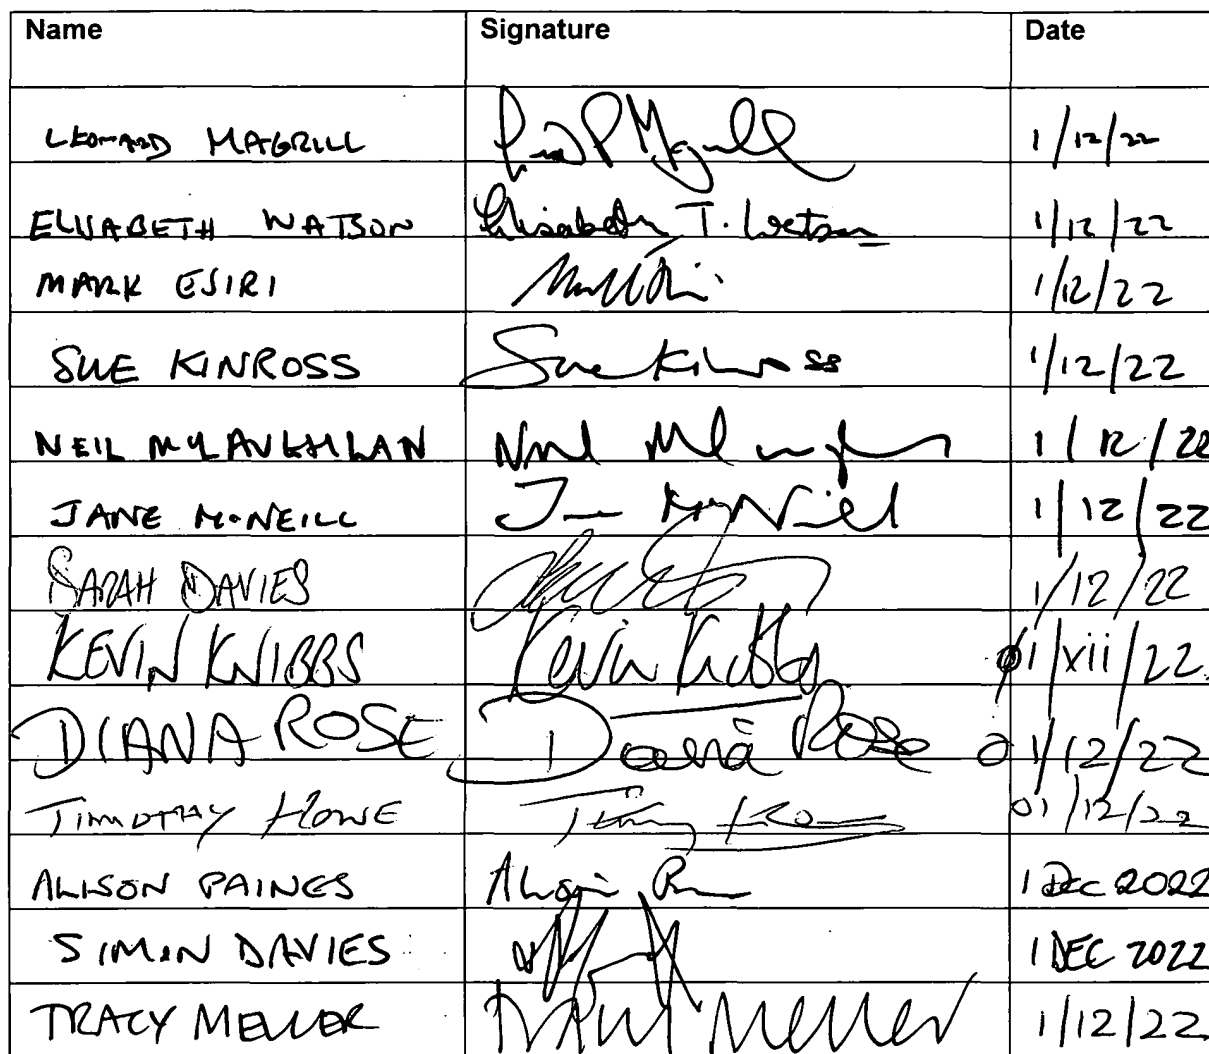 Name Signature Date
LEONARD MAGRILL 1/12/22
ELISABETH WATSON Elisabeth T. Watson 1/12/22
MARK ESIRI 1/12/22
SUE KINROSS Sue Kinross 1/12/22
NEIL McLAUGHLAN 1/12/22
JANE McNEILL 1/12/22
SARAH DAVIES 1/12/22
KEVIN KNIBBS Kevin Knibbs 01/xii/22
DIANA ROSE Diana Rose 01/12/22
TIMOTHY HOWE 01/12/22
ALISON PAINES 1 Dec 2022
SIMON DAVIES 1 DEC 2022
TRACY MELLER Tracy Meller 1/12/22